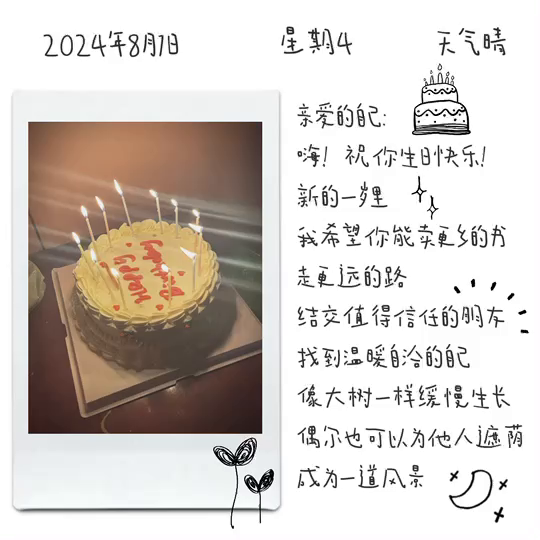 2024年8月1日 星期4 天气晴
亲爱的自己:
嗨!祝你生日快乐!
新的一岁里
我希望你能卖更多的书
走更远的路
结交值得信任的朋友
找到温暖自洽的自己
像大树一样缓慢生长
偶尔也可以为他人遮荫
成为一道风景
Happy
Birthday